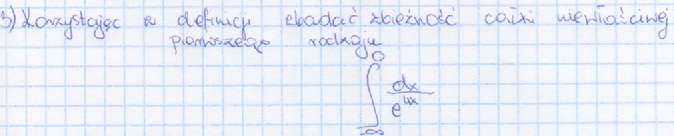 3) Korzystając z definicji zbadać zbieżność całki niewłaściwej
pierwszego rodzaju
∫_{-∞}^{0} dx / e^{4x}